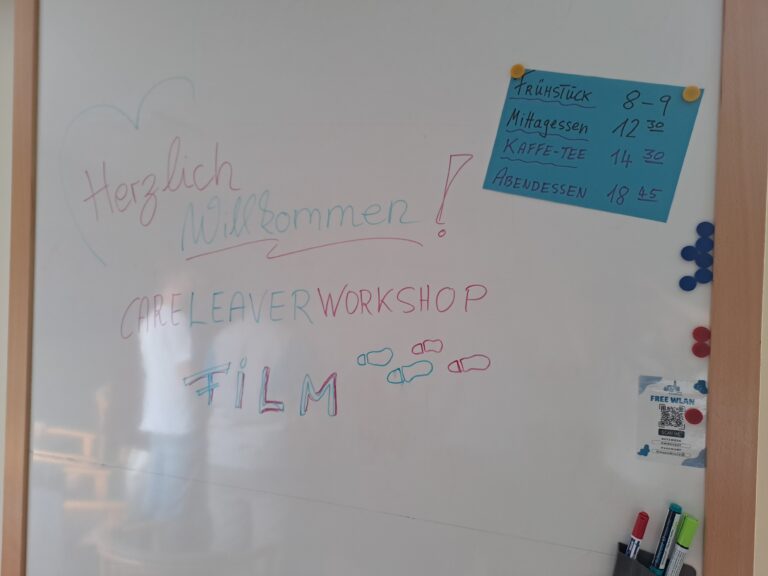 Herzlich
Willkommen!
CARELEAVERWORKSHOP
FiLM
FRÜHSTÜCK 8-9
Mittagessen 12 30
KAFFE-TEE 14 30
ABENDESSEN 18 45
FREE WLAN